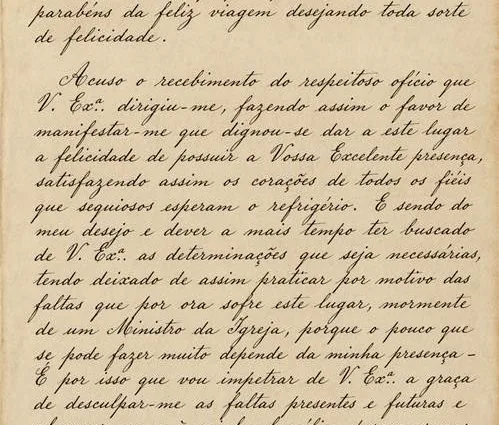 parabéns da feliz viagem desejando toda sorte
de felicidade.
Acuso o recebimento do respeitoso ofício que
V. Exª. dirigiu-me, fazendo assim o favor de
manifestar-me que dignou-se dar a este lugar
a felicidade de possuir a Vossa Excelente presença,
satisfazendo assim os corações de todos os fiéis
que sequiosos esperam o refrigério. E sendo do
meu desejo e dever a mais tempo ter buscado
de V. Exª. as determinações que seja necessárias,
tendo deixado de assim praticar por motivo das
faltas que por ora sofre este lugar, mormente
de um Ministro da Igreja, porque o pouco que
se pode fazer muito depende da minha presença -
É por isso que vou impetrar de V. Exª. a graça
de desculpar-me as faltas presentes e futuras e